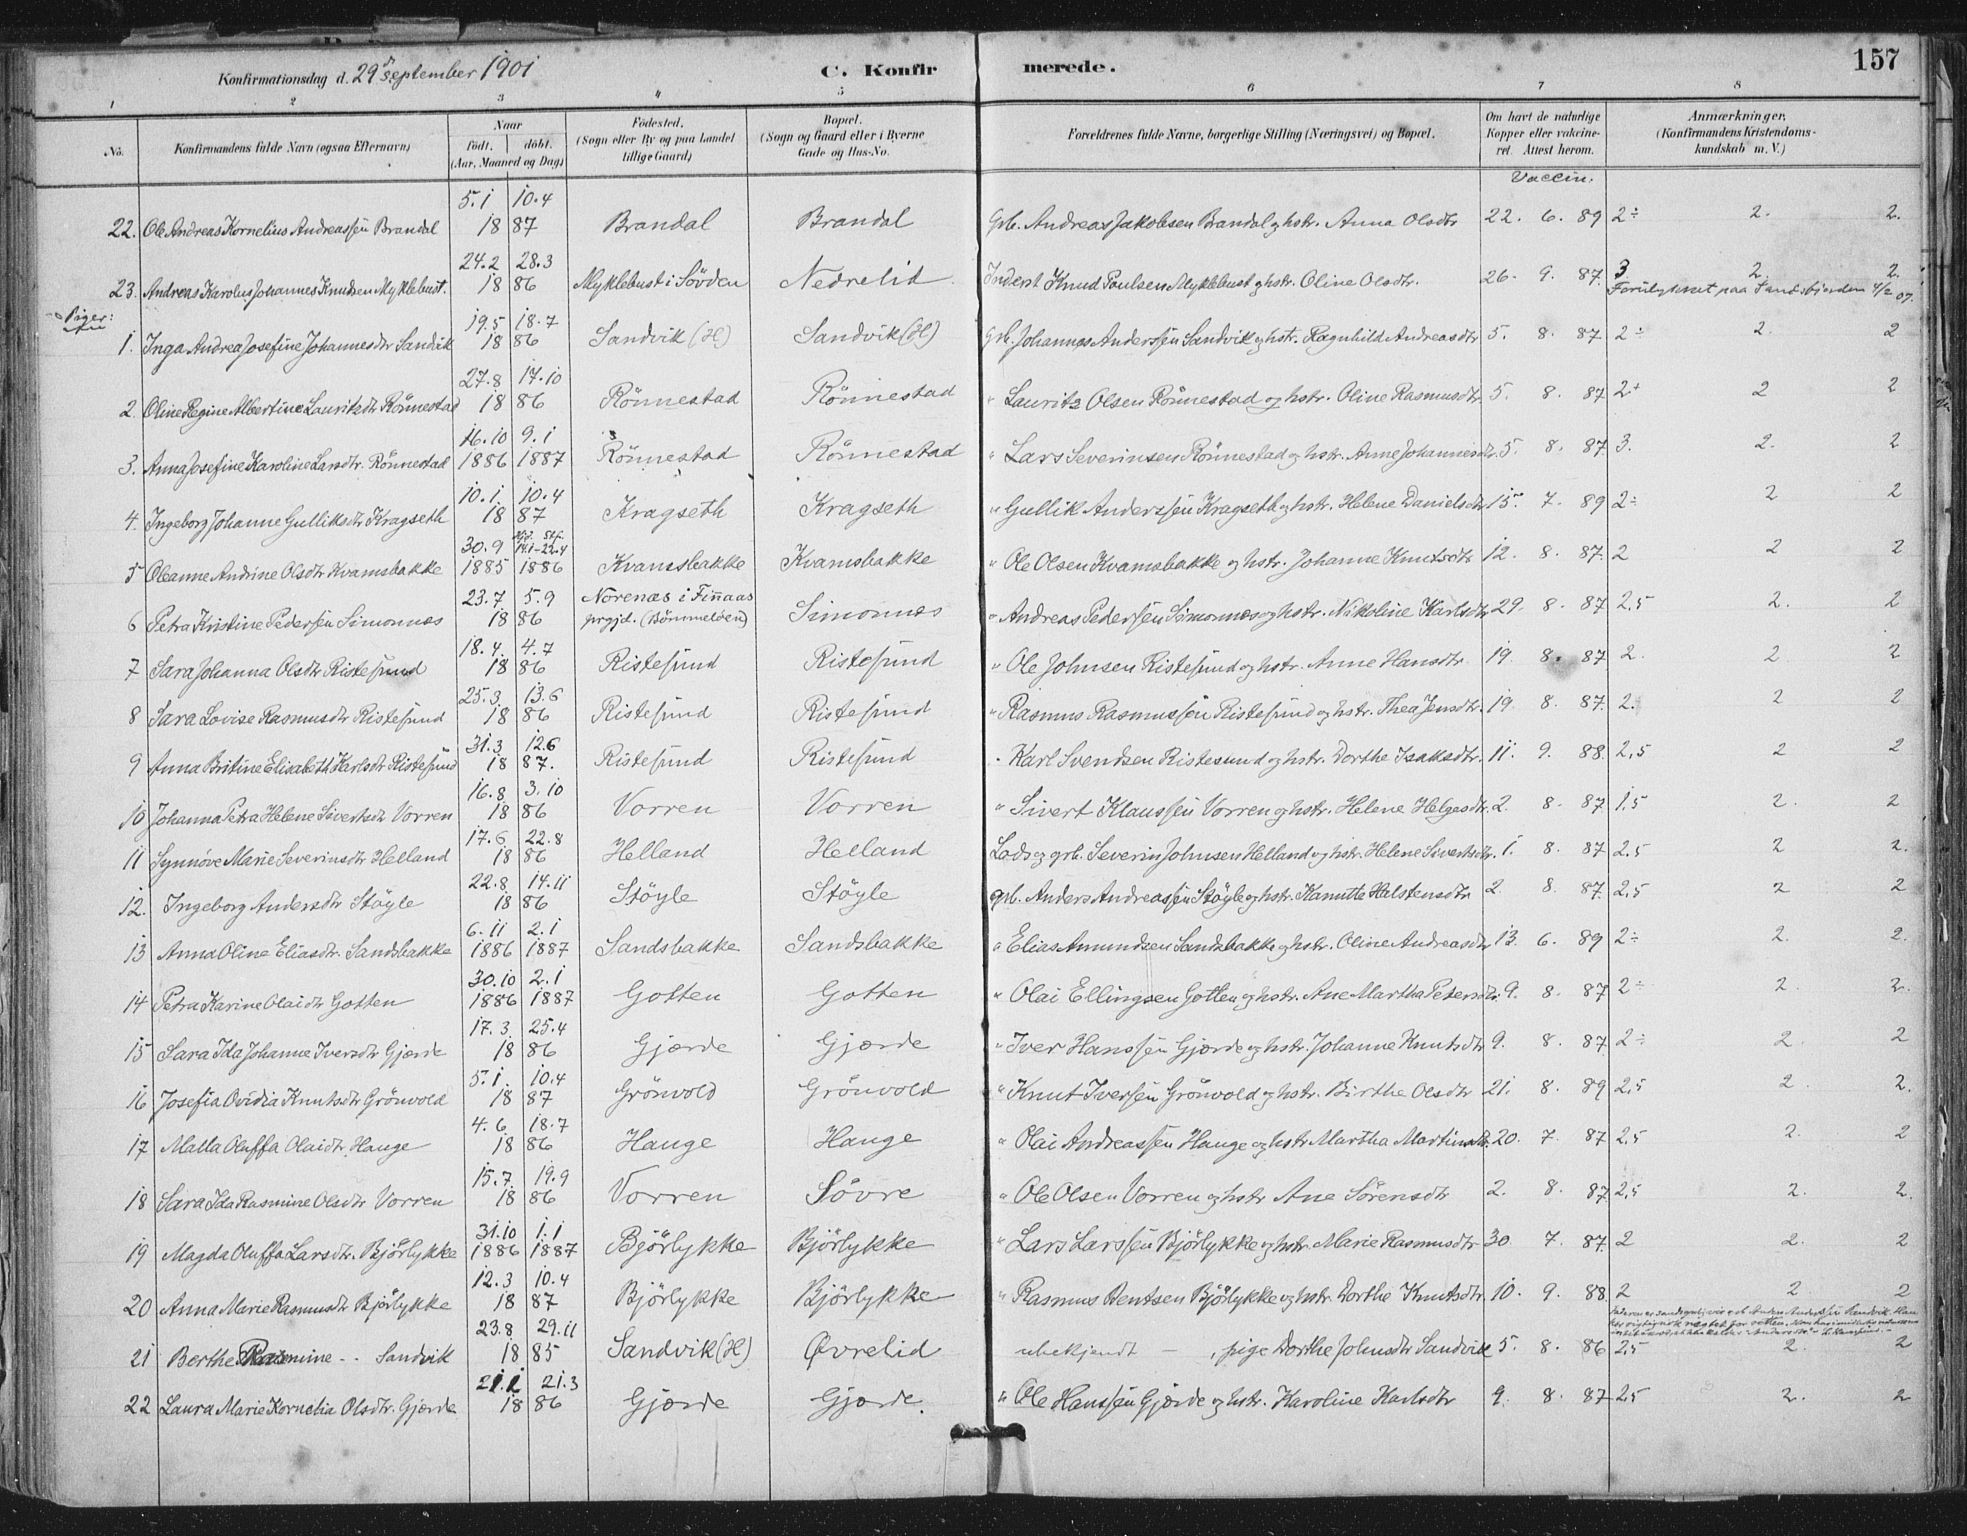 157
Konfirmationsdag d. 29 September 1901 C. Konfirmerede.
1 2 3 4 5 6 7 8
No. Konfirmandens fulde Navn (ogsaa Efternavn) Naar födt. döbt. (Aar, Maaned og Dag) Födested. (Sogn eller By og paa Landet tillige Gaard) Bopæl. (Sogn og Gaard eller i Byerne Gade og Hus-No. Forældrenes fulde Navne, borgerlige Stilling (Næringsvei) og Bopæl. Om havt de naturlige Kopper eller vakcineret. Attest herom. Anmærkninger. (Konfirmandens Kristendomskundskab m. V.)
Vaccin.
22. Ole Andreas Kornelius Andreassen Brandal 5.1 10.4 1887 Brandal Brandal Grb. Andreas Jakobsen Brandal og hstr. Anna Olsdtr 22. 6. 89 2÷ 2. 2.
23. Andreas Karolus Johannes Knudsen Myklebust. 24.2 28.3 1886 Myklebust i Sövden Nedrelid Inderst Knud Poulsen Myklebust og hstr. Oline Olsdtr. 26. 9. 87. 3 2. 2.
Forulykket paa Sandsfjorden 4/2 07.
Piger:
1. Inga Andrea Josefine Johannesdtr Sandvik 19.5 18.7 1886 Sandvik (H) Sandvik (H) Grb. Johannes Anderssen Sandvik og hstr. Ragnhild Andreasdtr 5. 8. 87 2÷ 2. 2
2. Oline Regine Albertine Lauritsdtr Rönnestad 27.8 17.10 1886 Rönnestad Rönnestad " Lauritz Olsen Rönnestad og hstr. Oline Rasmusdtr. 5. 8. 87 2+ 2 2
3. Anna Josefine Karoline Larsdtr. Rönnestad 16.10 9.1 1886 1887 Rönnestad Rönnestad " Lars Severinsen Rönnestad og hstr. Anne Johannesdtr. 5. 8. 87 3. 2. 2
4. Ingeborg Johanne Gulliksdtr Kragseth 10.1 10.4 1887 Kragseth Kragseth " Gullik Anderssen Kragseth og hstr. Helene Danielsdtr 15. 7. 89 2÷ 2 2
5 Oleanne Andrine Olsdtr Kvamsbakke 30.9 14.1-22.4 1885 1886 Kvamsbakke Kvamsbakke " Ole Olsen Kvamsbakke og hstr. Johanne Knutsdtr 12. 8. 87. 2 2 2
6 Petra Kristine Pedersen Simonnes 23.7 5.9 1886 Norenæs i Finnaas prgjd. (Bömmelöen) Simonnæs " Andreas Pedersen Simonnes og hstr. Nikoline Karlsdtr 29. 8. 87 2,5 2. 2
7 Sara Johanna Olsdtr Ristesund 18.4. 4.7 1886 Ristesund Ristesund " Ole Johnsen Ristesund og hstr. Anne Hansdtr 19. 8. 87 2. 2 2
8 Sara Lovise Rasmusdtr Ristesund 25.3. 13.6 1886 Ristesund Ristesund " Rasmus Rasmussen Ristesund og hstr. Thea Jensdtr. 19. 8. 87. 2. 2 2
9 Anna Britine Elisabeth Karlsdtr Ristesund 31.3 12.6 1887. Ristesund Ristesund " Karl Svendsen Ristesund og hstr. Dorthe Isaksdtr. 11. 9. 88. 2,5 2 2
10 Johanna Petra Helene Sivertsdtr Vorren 16.8 3.10 1886 Vorren Vorren " Sivert Klaussen Vorren og hstr. Helene Helgesdtr. 2. 8. 87 1,5 2. 2
11 Synnöve Marie Severinsdtr Helland 17.6 22.8 1886 Helland Helland Lods og grb. Severin Johnsen Helland og hstr. Helene Sivertsdtr. 1. 8. 87 2,5 2 2.
12. Ingeborg Andersdtr Stöyle 22.8 14.11 1886 Stöyle Stöyle grb. Anders Andreassen Stöyle og hstr. Kanutte Halstensdtr 2. 8. 87. 2,5 2 2
13 Anna Oline Eliasdtr. Sandsbakke 6.11 2.1 1886 1887 Sandsbakke Sandsbakke " Elias Amundsen Sandsbakke og hstr. Oline Andreasdtr. 13. 6. 89 2÷ 2. 2.
14 Petra Karine Olaidtr Gotten 30.10 2.1 1886 1887 Gotten Gotten " Olai Ellingsen Gotten og hstr. Ane Martha Petersdtr. 9. 8. 87 2÷ 2. 2.
15 Sara Ida Johanne Iversdtr Gjærde 17.3. 25.4 1886 Gjærde Gjærde " Iver Hanssen Gjærde og hstr. Johanne Knutsdtr 9. 8. 87 2÷ 2. 2
16 Josefia Ovidia Knutsdtr Grönvold 5.1. 10.4 1887 Grönvold Grönvold " Knut Iversen Grönvold og hstr. Birthe Olsdtr 21. 8. 89 2,5 2. 2.
17 Malla Oluffa Olaidtr. Hauge 4.6 18.7 1886 Hauge Hauge " Olai Andreassen Hauge og hstr Martha Martinsdtr. 20. 7. 87 2,5 2. 2
18 Sara Ida Rasmine Olsdtr Vorren 15.7. 19.9 1886 Vorren Sövre " Ole Olsen Vorren og hstr Ane Sörensdtr 2. 8. 87 2,5 2. 2.
19 Magda Oluffa Larsdtr. Bjørlykke 31.10 1.1 1886 1887 Bjørlykke Bjørlykke " Lars Larssen Bjørlykke og hstr. Marie Rasmusdtr 30. 7. 87. 2 2. 2
20 Anna Marie Rasmusdtr Bjørlykke 12.3 10.4 1887 Bjørlykke Bjørlykke " Rasmus Bentsen Bjørlykke og hstr. Dorthe Knutsdtr. 10. 9. 88 2 2 2
21 Berthe Rasmine - - Sandvik 23.8 29.11 1885 Sandvik (H) Øvrelid ubekjendt - , pige Dorthe Johnsdtr Sandvik 5. 8. 86 2,5 2. 2
22 Laura Marie Kornelia Olsdtr. Gjærde 21.3 1886 Gjærde Gjærde. " Ole Hanssen Gjærde og hstr. Karoline Karlsdtr 9. 8. 87 2,5 2. 2